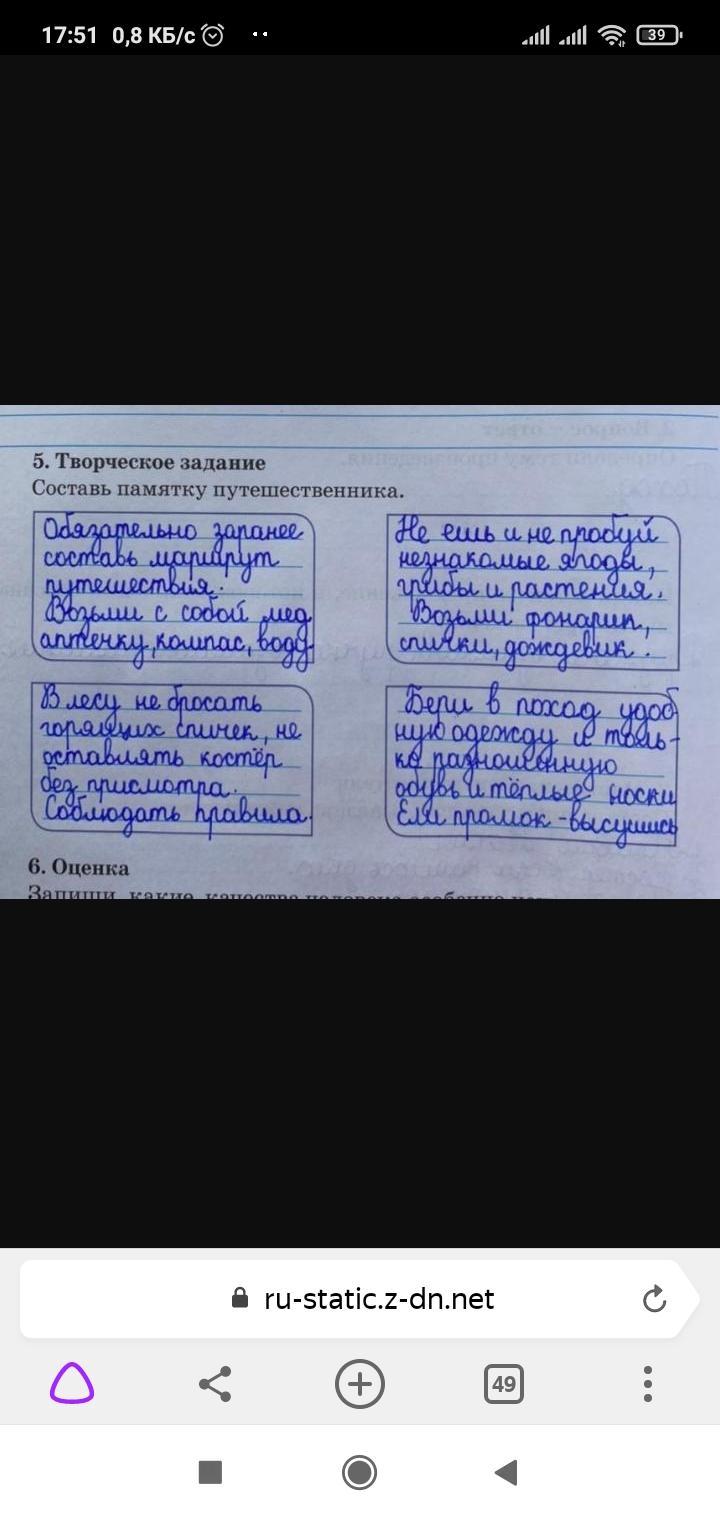 17:51 0,8 КБ/с
39
5. Творческое задание
Составь памятку путешественника.
Обязательно заранее
составь маршрут
путешествия.
Возьми с собой мед.
аптечку, компас, воду.
Не ешь и не пробуй
незнакомые ягоды,
грибы и растения.
Возьми фонарик,
спички, дождевик.
В лесу не бросать
горящих спичек, не
оставлять костёр
без присмотра.
Соблюдать правила.
Бери в поход удоб
ную одежду и толь-
ко разношенную
обувь и тёплые носки
Если промок - высушись
6. Оценка
Запиши, какие качества человека особенно
ru-static.z-dn.net
49